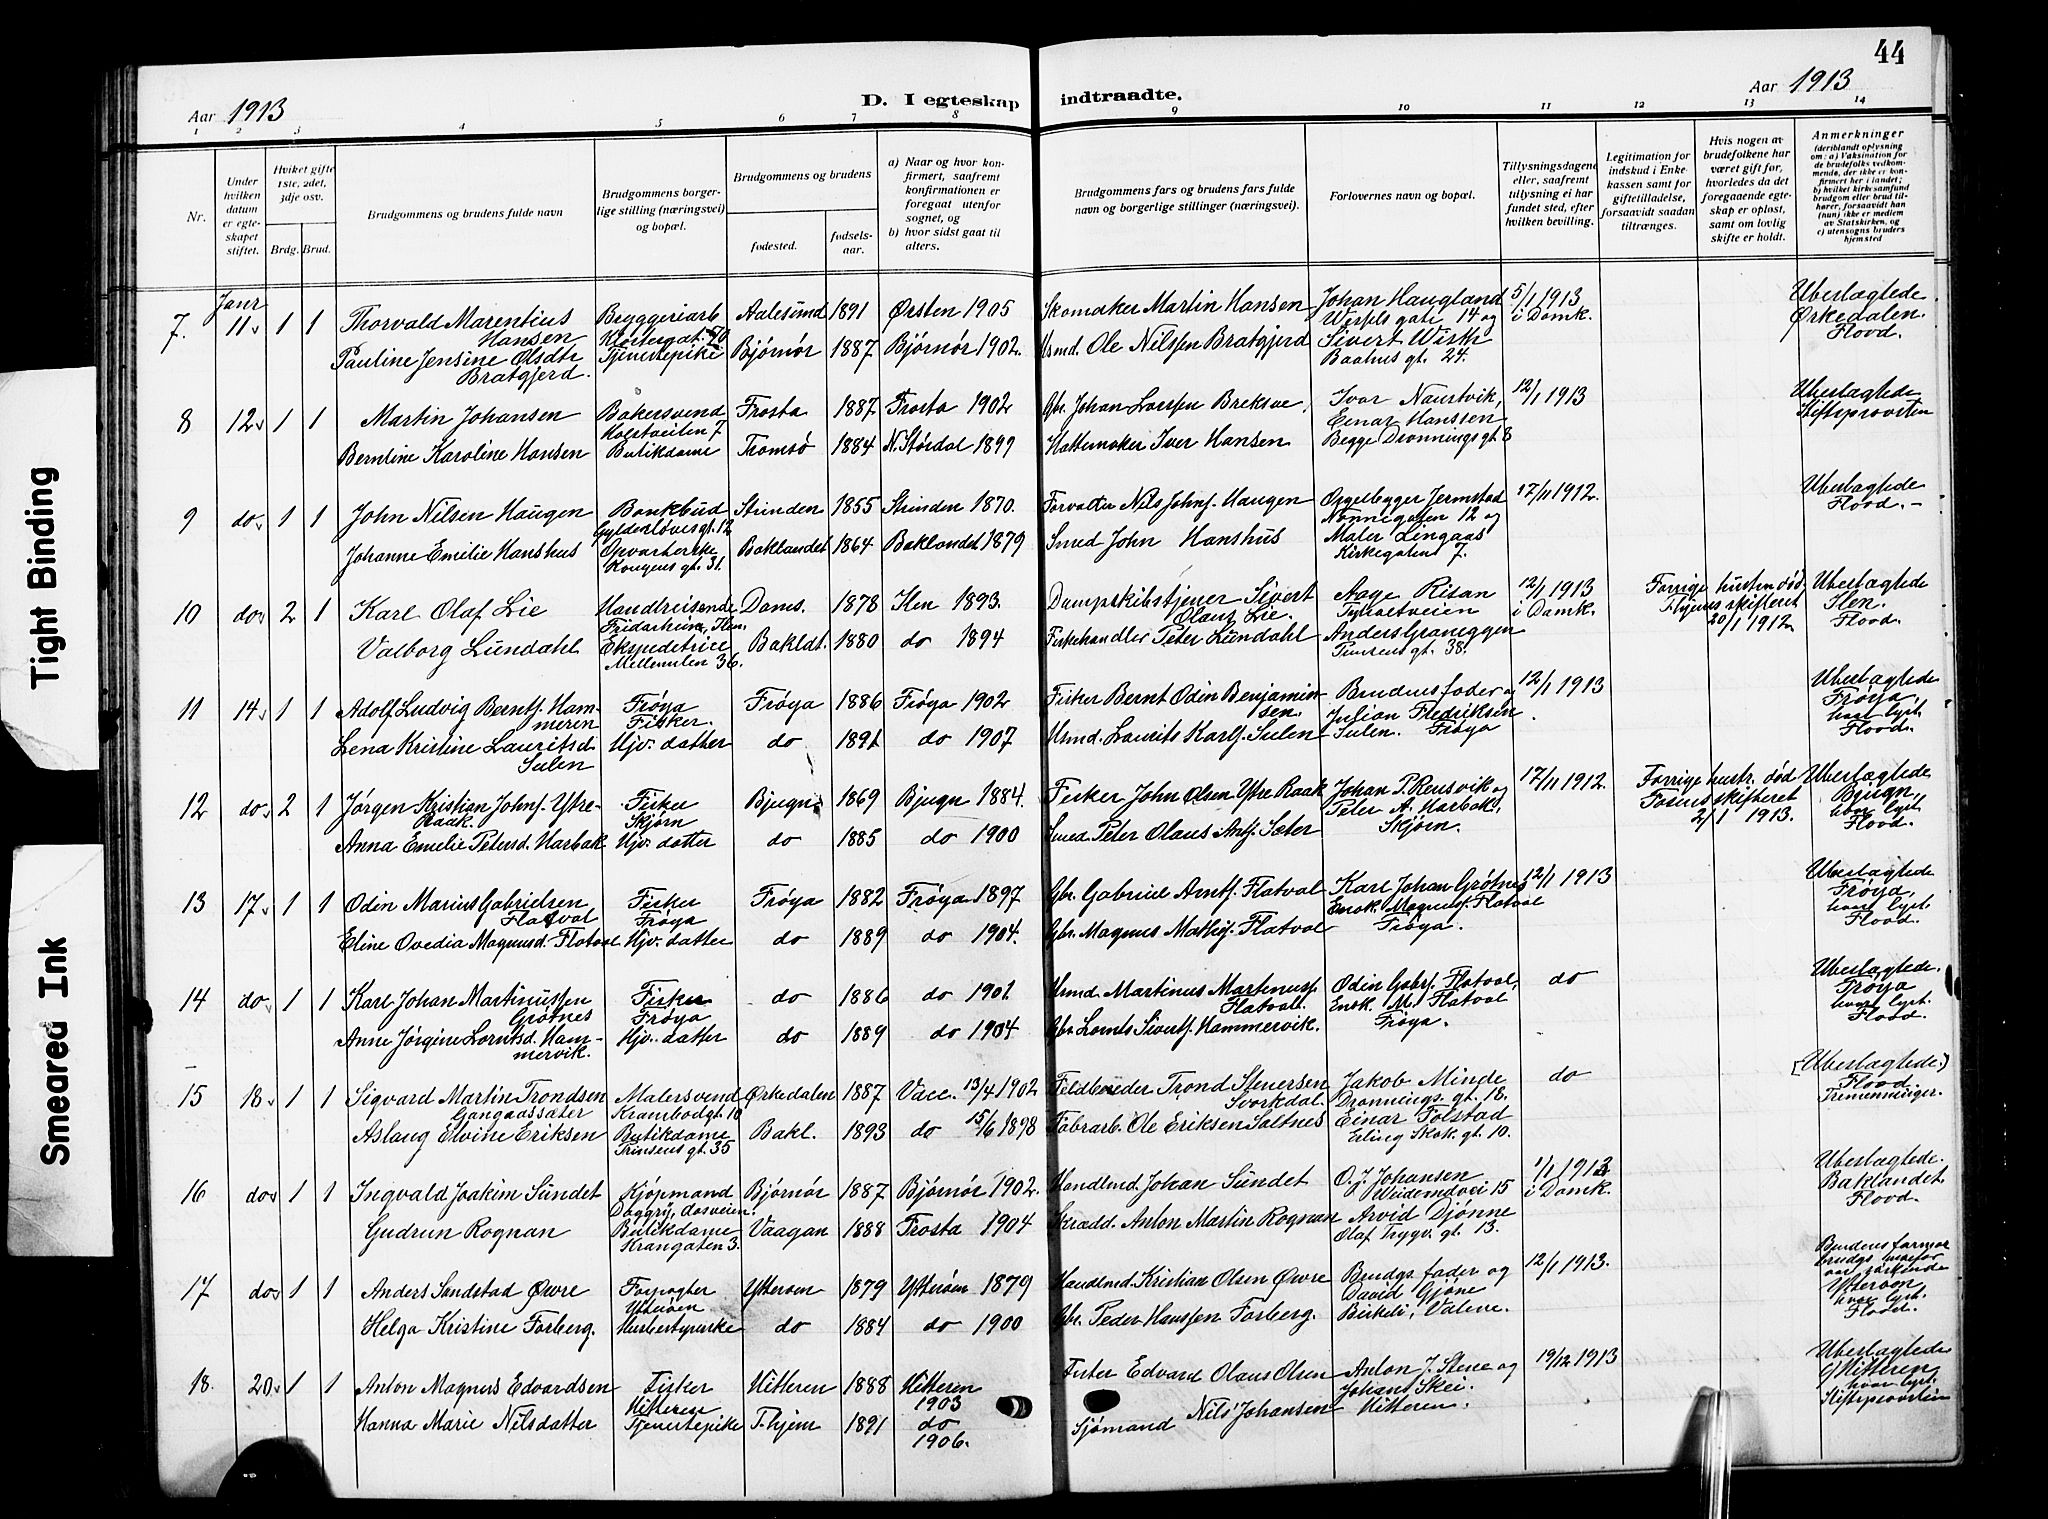 44
Aar 1913
D. I egteskap indtraadte.
Aar 1913
1 2 3 4 5 6 7 8 9 10 11 12 13 14
Nr.
Under hvilken datum er egteskapet stiftet.
Hvilket gifte 1ste, 2det, 3dje osv.
Brdg. Brud.
Brudgommens og brudens fulde navn
Brudgommens borgerlige stilling (næringsvei) og bopæl.
Brudgommens og brudens
fødested.
fødselsaar.
a) Naar og hvor konfirmert, saafremt konfirmationen er foregaat utenfor sognet, og
b) hvor sidst gaat til alters.
Brudgommens fars og brudens fars fulde navn og borgerlige stillinger (næringsvei).
Forlovernes navn og bopæl.
Tillysningsdagene eller, saafremt tillysning ei har fundet sted, efter hvilken bevilling.
Legitimation for indskud i Enkekassen samt for giftetilladelse, forsaavidt saadan tiltrænges.
Hvis nogen av brudefolkene har været gift før, hvorledes da det foregaaende egteskap er opløst, samt om lovlig skifte er holdt.
Anmerkninger
(deriblandt oplysning om: a) Vaksination for de brudefolks vedkommende, der ikke er konfirmert her i landet; b) hvilket kirkesamfund brudgom eller brud tilhører, forsaavidt han (hun) ikke er medlem av Statskirken, og c) utensogns bruders hjemsted
Janr
7. 11 1 1 Thorvald Marentius Hansen Bryggeriarb Klostergat. Aalesund 1891 Ørsten 1905 Skomaker Martin Hansen Johan Haugland Wesels gate 14 og 5/1 1913 i Domk. Ubeslægtede Ørkedalen. Flood.
Pauline Jensine Olsdtr Bratgjerd. Tjenestepike Bjørnør 1887 Bjørnør 1902. Usmd. Ole Nilssen Bratgjerd Sivert Wisth Baahus gt. 24.
8 12 1 1 Martin Johansen Bakersvend 7 Frosta 1887 Frosta 1902 Gbr. Johan Lorssen Breksve, Ivar Naustvik, Einar Hanssen 12/1 1913 Ubeslægtede Stiftsprovsten
Berntine Karoline Hansen Butikdame Tromsö 1884 N. Stördal 1899 Hattemaker Iver Hansen Begge Dronnings gt. 8
9 do 1 1 John Nilsen Haugen Bankbud Gyldenløves gt. 12 Strinden 1855 Strinden 1870. Forvalter Nils Johns. Haugen Orgelbygger Jermstad Nonnegaten 12 og 17/11 1912. Ubeslægtede Flood.-
Johanne Emilie Hanshus Opvarterske Kongens gt. 31. Baklandet 1864 Baklandet 1879 Smed John Hanshus Maler Lingaas Kirkegaten 7.
10 do 2 1 Karl Olaf Lie Handlreisende Ilen. Doms. 1878 Ilen 1893. Dampskibstjener Sivert Olaus Lie. Aage Risan 12/1 1913 i Domk. Forrige hustru død, skifteret 20/1 1912 Ubeslægtede Ilen. Flood.
Valborg Lundahl Ekspeditrice Mellemilen 36. Baklat. 1880 do 1894 Fiskehandler Peter Lundahl Anders Graneggen gt. 38.
11 14 1 1 Adolf Ludvig Berntj. Hammeren Frøya Fisker. Frøya 1886 Frøya 1902 Fisker Bernt Odin Benjaminsen. Brudens fader og Julian Fredriksen 12/1 1913 Ubeslægtede Frøya, hvor lyst. Flood.
Lena Kristine Lauritsd Sulen Hjv. datter do 1891 do 1907 Usmd. Laurits Karlj. Sulen Sulen. Frøya
12 do 2 1 Jørgen Kristian Johnj. Ytre-Raak. Fisker Skjørn Bjugn 1869 Bjugn 1884. Fisker John Olsen Ytre Raak Johan P. Rensvik og Peter A. Harbak, 17/11 1912. Forrige hustr. død Fosens skifteret 2/1 1913. Ubeslægtede Bjugn, hvor lyst Flood.
Anna Emelie Petersd. Harbak Hjv. datter do 1885 do 1900 Smed Peter Olaus Antj. Sæter Skjørn.
13 17 1 1 Odin Marius Gabrielsen Flatval Fisker Frøya Frøya 1882 Frøya 1897 Gbr. Gabriel Arntj. Flatval Karl Johan Grøtnes Ensk. Magnusj. Flatval 12/1 1913 Ubeslægtede Frøya, hvor lyst Flood.
Eline Ovedia Magnusd. Flatval Hjv. datter do 1889 do 1904. Gbr. Magnus Mathisj. Flatval Frøya.
14 do 1 1 Karl Johan Martinussen Grøtnes Fisker Frøya do 1886 do 1901 Usmd. Martinus Martinusj. Flatvall. Odin Gabrj. Flatval, Ensk. M. Flatval do Ubeslægtede. Frøya hvor lyst. Flood.
Anne Jørgine Lorntsd. Hammervik. Hjv. datter do 1889 do 1904 Gbr. Lornts Sivertj. Hammervik. Frøya.
15 18 1 1 Sigvard Martin Trondsen Gangaassæter Malersvend Krambodgt. 10 Ørkedalen 1887 Vacc. 13/4 1902 Feldbereder Trond Stenersen Svorkdal. Jakob Minde Dronnings. gt. 18. do (Ubeslægtede.) Flood Tremenninger.
Aslaug Elvine Eriksen Butikdame Prinsens gt. 35 Bakl. 1893 do 15/6 1898 Fabrarb. Ole Eriksen Saltnes Einar Folstad Erling Skak. gt. 10.
16 do 1 1 Ingvald Joakim Sundet Kjøpmand Bjørnør 1887 Bjørnør 1902. Handlmd. Johan Sundet O. J. Johansen 15 1/1 1913 i Domk. Ubeslægtede. Baklandet. Flood.
Gudrun Rognan Butikdame Krangaten 3. Vaagan 1888 Frosta 1904 Skrædd. Anton Martin Rognan Arvid Djønne Olaf Trygv. gt. 13.
17 do 1 1 Anders Sandstad Øvre Forpagter Ytterøen Ytterøen 1879 Ytterøen 1879 Handlmd. Kristian Olsen Øvre Brudgs. fader og David Gjøne 12/1 1913. Brudens farmor Ytterøen, hvor lyst. Flood.
Helga Kristine Forberg. do 1884 do 1900 Gbr. Peder Hanssen Forberg. Birkeli,
18. 20 1 1 Anton Magnus Edvardsen Fisker Hitteren Hitteren 1888 Hitteren 1903 Fisker Edvard Olaus Olsen Anton J. Stene og Johan Skei. 19/12 1913 Ubeslægtede Hitteren hvor lyst. Stiftsprovsten
Hanna Marie Nilsdatter Tjenestepike T.hjem 1891 do 1906. Sjømand Nils Johansen Hitteren.
Tight Binding
Smeared Ink